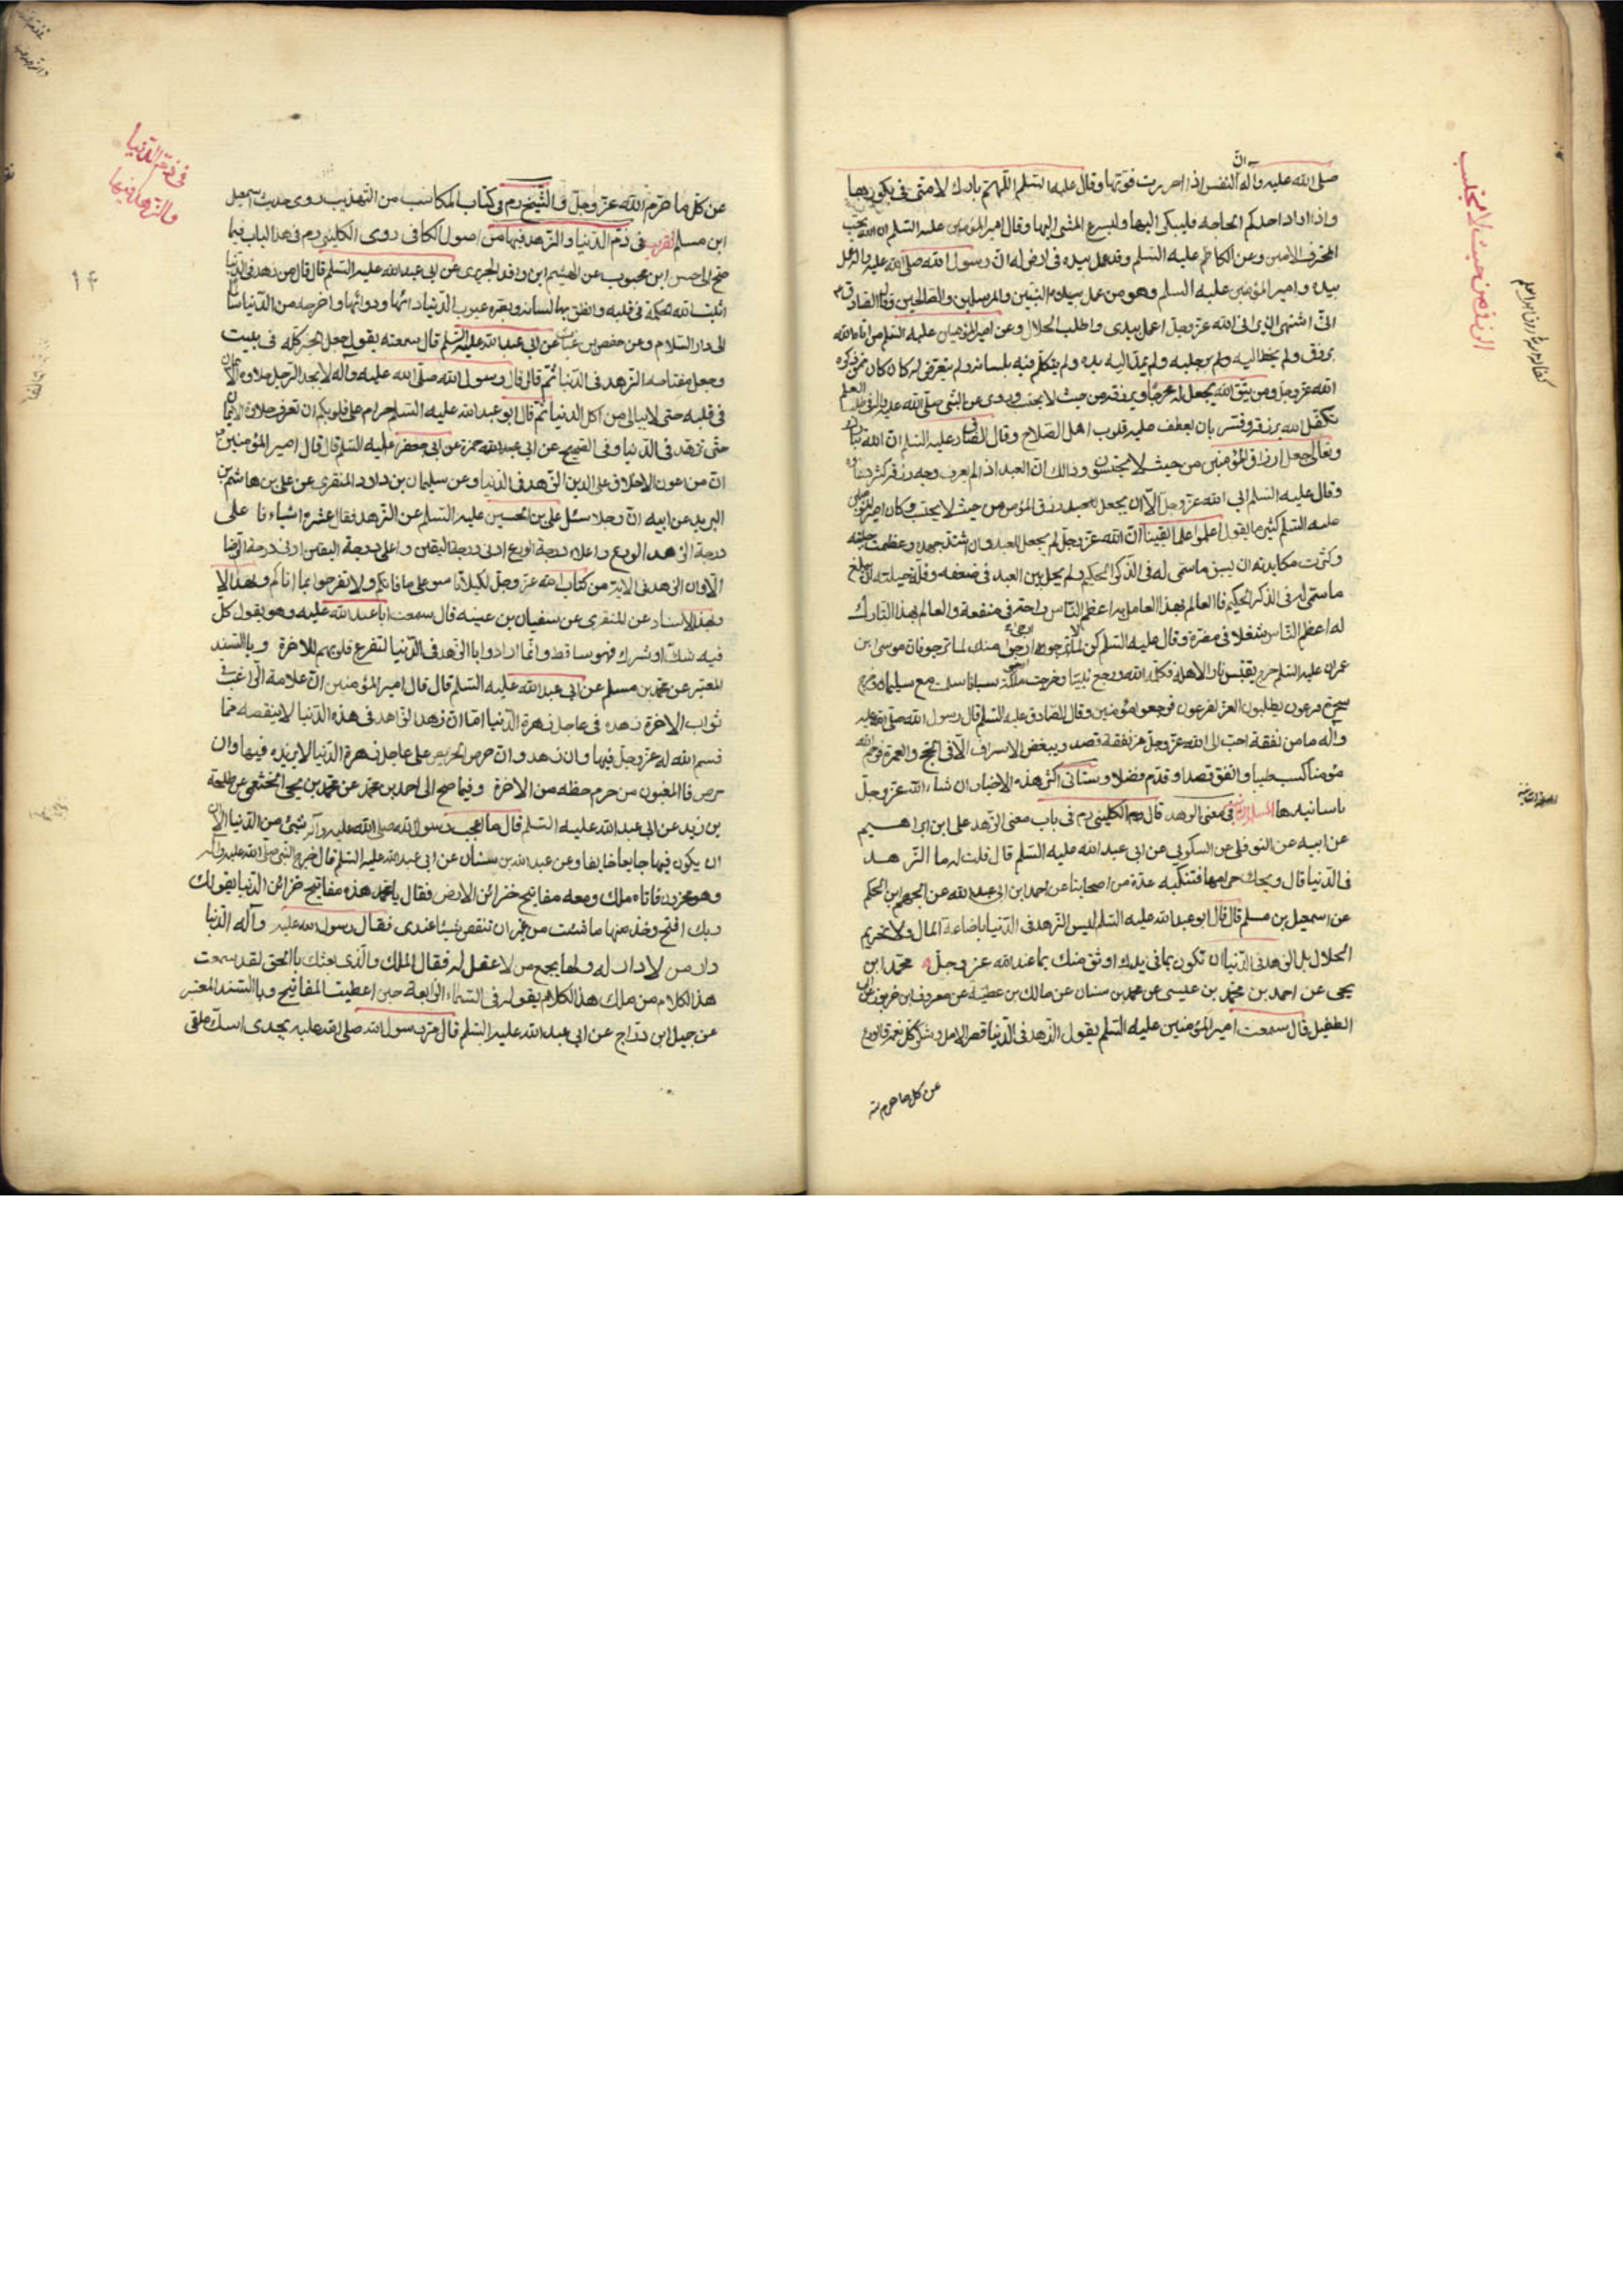 صلى الله عليه وآله ان النفس اذا احرزت قوتها وقال عليه السلم اللهم بارك لامتى فى بكورها
واذا اراد احدكم الحاجة فليبكر اليها وليسرع المشى اليها وقال امير المؤمنين عليه السلم ان الله يحب
المحترف الامين وعن الكاظم عليه السلم وقد عمل بيده فى ارض له ان رسول الله صلى الله عليه وآله عمل
بيده وامير المؤمنين عليه السلم وهو من عمل النبيين والمرسلين والصالحين وقال الصادق
انى اشتهى ان يرانى الله عز وجل اعمل بيدى واطلب الحلال وعن امير المؤمنين عليه السلم من اتاه الله
برزق ولم يخط اليه ولم برجله ولم يمد اليه يده ولم يتكلم فيه بلسانه ولم يتعرض له كان ممن ذكره
الله عز وجل ومن يتق الله يجعل له مخرجا ويرزقه من حيث لا يحتسب وروى عن النبى صلى الله عليه وآله طالب العلم
تكفل الله برزقه وفسر بان يعطف عليه قلوب اهل الصلاح وقال الصادق عليه السلم ان الله تبارك
وتعالى جعل ارزاق المؤمنين من حيث لا يحتسبون وذالك ان العبد اذا لم يعرف وجه رزقه كثر دعاؤه
وقال عليه السلم ابى الله عز وجل الا ان يجعل رزق المؤمن من حيث لا يحتسب وكان امير المؤمنين
عليه السلم كثيرا ما يقول اعلموا علما يقينا ان الله عز وجل لم يجعل للعبد وان اشتد جهده وعظمت حيلته
وكثرت مكايدته ان يسبق ما سمى له فى الذكر الحكيم ولم يحل بين العبد فى ضعفه وقلة حيلته ان يبلغ
ما سمى له فى الذكر الحكيم فالعالم بهذا العامل به اعظم الناس راحة فى منفعة والعالم بهذا التارك
له اعظم الناس شغلا فى مضرة وقال عليه السلم كن لما لا ترجوه ارجى منك لما ترجو فان موسى ابن
عمران عليه السلم خرج يقتبس نارا لاهله فكلمه الله ورجع نبيا وخرجت ملكة سبا فاسلمت مع سليمان وخرج
سحرة فرعون يطلبون العز لفرعون فرجعوا مؤمنين وقال الصادق عليه السلم قال رسول الله صلى الله عليه
وآله ما من نفقة احب الى الله عز وجل من نفقة قصد ويبغض الاسراف الا فى الحج والعمرة فرحم الله
مؤمنا كسب طيبا وانفق قصدا وقدم فضلا وستاتى اكثر هذه الاخبار ان شاء الله عز وجل
باسانيدها فى معنى الزهد قال الكلينى رم فى باب معنى الزهد على ابن ابراهيم
عن ابيه عن النوفلى عن السكونى عن ابى عبد الله عليه السلم قال قلت له ما الزهد
فى الدنيا قال ويحك حرامها فتنكبه عدة من اصحابنا عن احمد ابن ابى عبد الله عن الجهم ابن الحكم
عن اسمعيل بن مسلم قال قال ابو عبد الله عليه السلم ليس الزهد فى الدنيا باضاعة المال ولا تحريم
الحلال بل الزهد فى الدنيا ان لا تكون بما فى يدك اوثق منك بما عند الله عز وجل محمد ابن
يحيى عن احمد بن محمد بن عيسى عن محمد بن سنان عن مالك بن عطية عن معروف ابن خربوذ عن ابى
الطفيل قال سمعت امير المؤمنين عليه السلم يقول الزهد فى الدنيا قصر الامل وشكر كل نعمة والورع
عن كل ما حرم
الرزق من حيث لا يحتسب
عن كل ما حرم الله عز وجل والشيخ رم فى كتاب المكاسب من التهذيب روى حديث اسمعيل
ابن مسلم فى ذم الدنيا والزهد فيها من اصول الكافى روى الكلينى رم فى هذا الباب فيما
صح الى حسن ابن محبوب عن الهيثم ابن واقد الجريرى عن ابى عبد الله عليه السلم قال قال من زهد فى الدنيا
اثبت الله الحكمة فى قلبه وانطق بها لسانه وبصره عيوب الدنيا دائها ودوائها واخرجه من الدنيا سالما
الى دار السلام وعن حفص بن غياث عن ابى عبد الله عليه السلم قال سمعته يقول جعل الخير كله فى بيت
وجعل مفتاحه الزهد فى الدنيا ثم قال قال رسول الله صلى الله عليه وآله لا يجد الرجل حلاوة الايمان
فى قلبه حتى لا يبالى من اكل الدنيا ثم قال ابو عبد الله عليه السلم حرام على قلوبكم ان تعرف حلاوة الايمان
حتى تزهد فى الدنيا وفى الصحيح عن ابى حمزة عن ابى جعفر عليه السلم قال قال امير المؤمنين
ان من اعون الاخلاق على الدين الزهد فى الدنيا وعن سليمان بن داود المنقرى عن على بن هاشم بن
البريد عن ابيه ان رجلا سئل على بن الحسين عليه السلم عن الزهد فقال عشرة اشياء فاعلى
درجة الزهد الورع واعلى درجة الورع ادنى درجة اليقين واعلى درجة اليقين ادنى درجة الرضا
الا وان الزهد فى الاية من كتاب الله عز وجل لكيلا تاسوا على ما فاتكم ولا تفرحوا بما اتاكم
وبهذا الاسناد عن المنقرى عن سفيان بن عيينه قال سمعت ابا عبد الله عليه وهو يقول كل
فيه شك او شرك فهو ساقط وانما ارادوا بالزهد فى الدنيا لتفرغ قلوبهم للاخرة وبالسند
المعتبر عن محمد بن مسلم عن ابى عبد الله عليه السلم قال قال امير المؤمنين ان علامة الراغب فى
ثواب الاخرة زهده فى عاجل زهرة الدنيا اما ان زهد الزاهد فى هذه الدنيا لا ينقصه مما
قسم الله له عز وجل فيها وان زهد وان حرص الحريص على عاجل زهرة الدنيا لا يزيده فيها وان
حرص فالمغبون من حرم حظه من الاخرة وفيما صح الى احمد بن محمد عن محمد بن يحيى الخثعمى عن طلحة
بن زيد عن ابى عبد الله عليه السلم قال ما اعجب رسول الله صلى الله عليه وآله شىء من الدنيا الا
ان يكون فيها جايعا خايفا وعن عبد الله بن سنان عن ابى عبد الله عليه السلم قال خرج النبى صلى الله عليه وآله
وهو محزون فاتاه ملك ومعه مفاتيح خزائن الارض فقال يا محمد هذه مفاتيح خزائن الدنيا يقول لك
ربك افتح وخذ منها ما شئت من غير ان تنقص شيئا عندى فقال رسول الله عليه وآله الدنيا
دار من لا دار له ولها يجمع من لا عقل له فقال الملك والذى بعثك بالحق لقد سمعت
هذا الكلام من ملك يقوله فى السماء الرابعة حين اعطيت المفاتيح وبالسند المعتبر
عن جميل ابن دراج عن ابى عبد الله عليه السلم قال مر رسول الله صلى الله عليه بجدى اسك ملقى
فى ذم الدنيا
والزهد فيها
۱۴